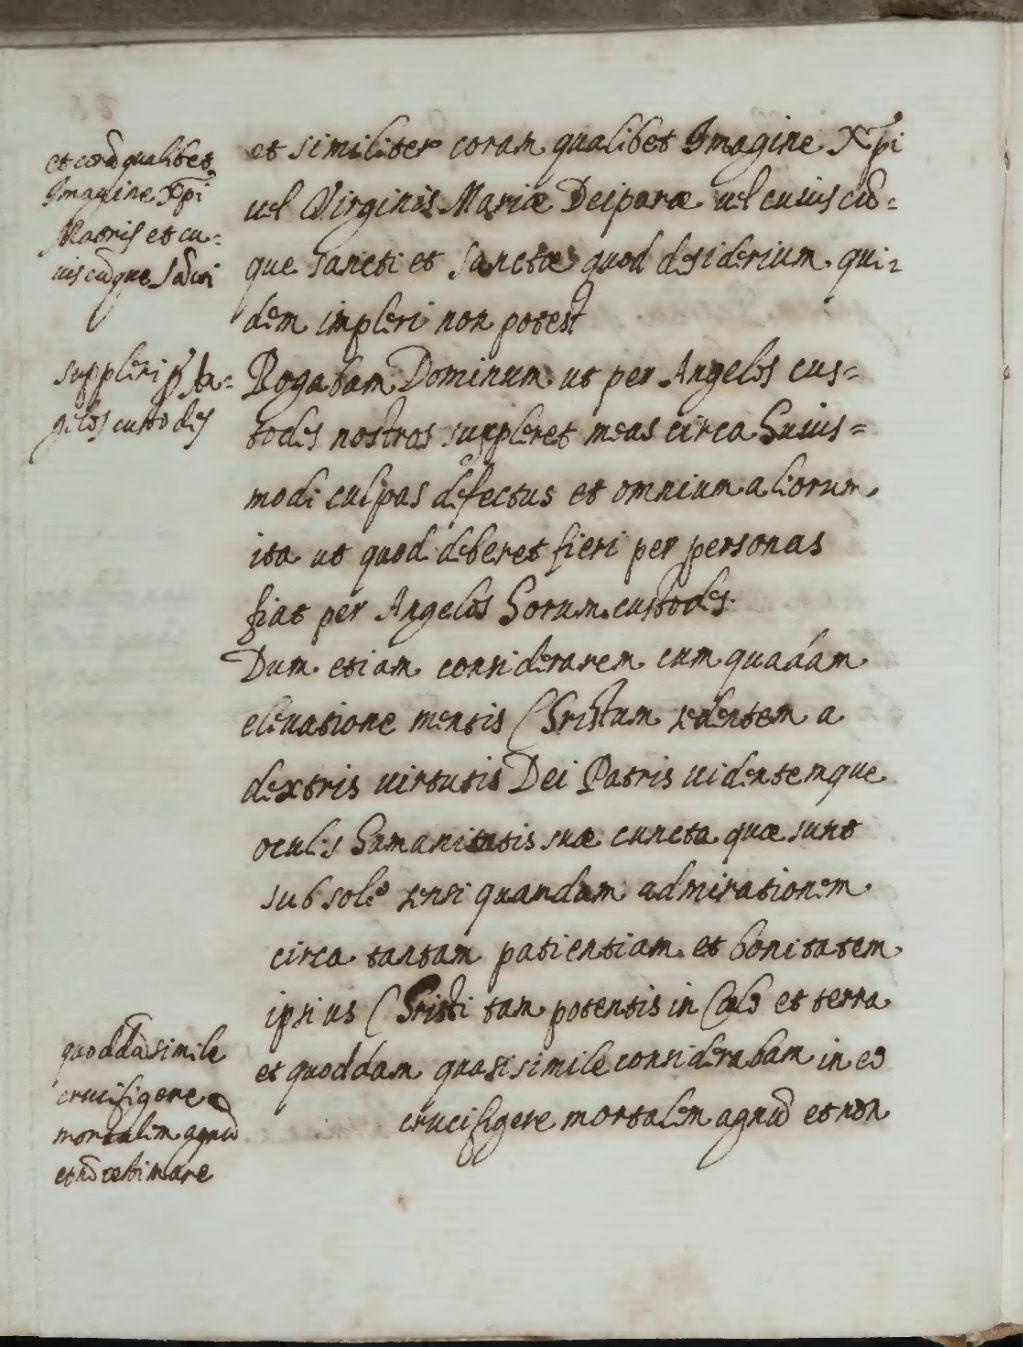 et corā qualibet
Imagine Xp̄i
Matris et cu-
iuscūque Sācti
et similiter coram qualibet Imagine Xp̄i
uel Virginis Mariæ Deiparæ uel cuius cū=
que Sancti et Sanctæ quod desiderium qui=
dem impleri non potest
suppleri ꝑ An=
gelos custodes
Rogabam Dominum ut per Angelos cus=
todes nostros suppleret meas circa huius=
modi culpas defectus et omnium aliorum
ita ut quod deberet fieri per personas
fiat per Angelos horum custodes.
Dum etiam considerarem cum quadam
eleuatione mentis Christum sedentem a
dextris uirtutis Dei Patris uidentemque
oculis humanitatis suæ cuncta quæ sunt
sub sole sensi quandam admirationem
circa tantam patientiam et bonitatem
ipsius Christi tam potentis in Cælo et terra
et quoddam quasi simile considerabam in eo
crucifigere mortalem agnū et non
quoddā simile
crucifigere
mortalem agnū
et nō æstimare